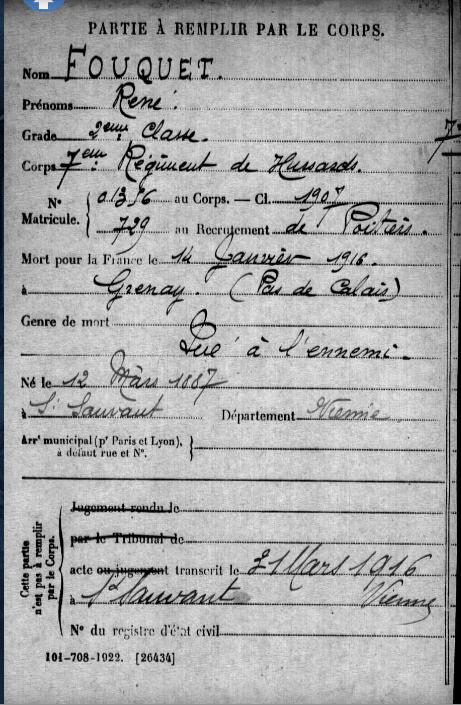 PARTIE À REMPLIR PAR LE CORPS.
Nom FOUQUET.
Prénoms René.
Grade 2eme Classe.
Corps 7eme Régiment de Hussards.
N° Matricule. { au Corps. — Cl. 1907
729 au Recrutement de Poitiers.
Mort pour la France le 14 Janvier 1916.
à Grenay. (Pas de Calais)
Genre de mort
Tué à l'ennemi.
Né le 12 Mars 1887
à St Sauvant Département Vienne
Arrt municipal (pr Paris et Lyon), à défaut rue et N°. }
Cette partie n'est pas à remplir par le Corps.
Jugement rendu le
par le Tribunal de
acte ou jugement transcrit le 21 Mars 1916
à St Sauvant Vienne
N° du registre d'état civil
101-708-1922. [26434]